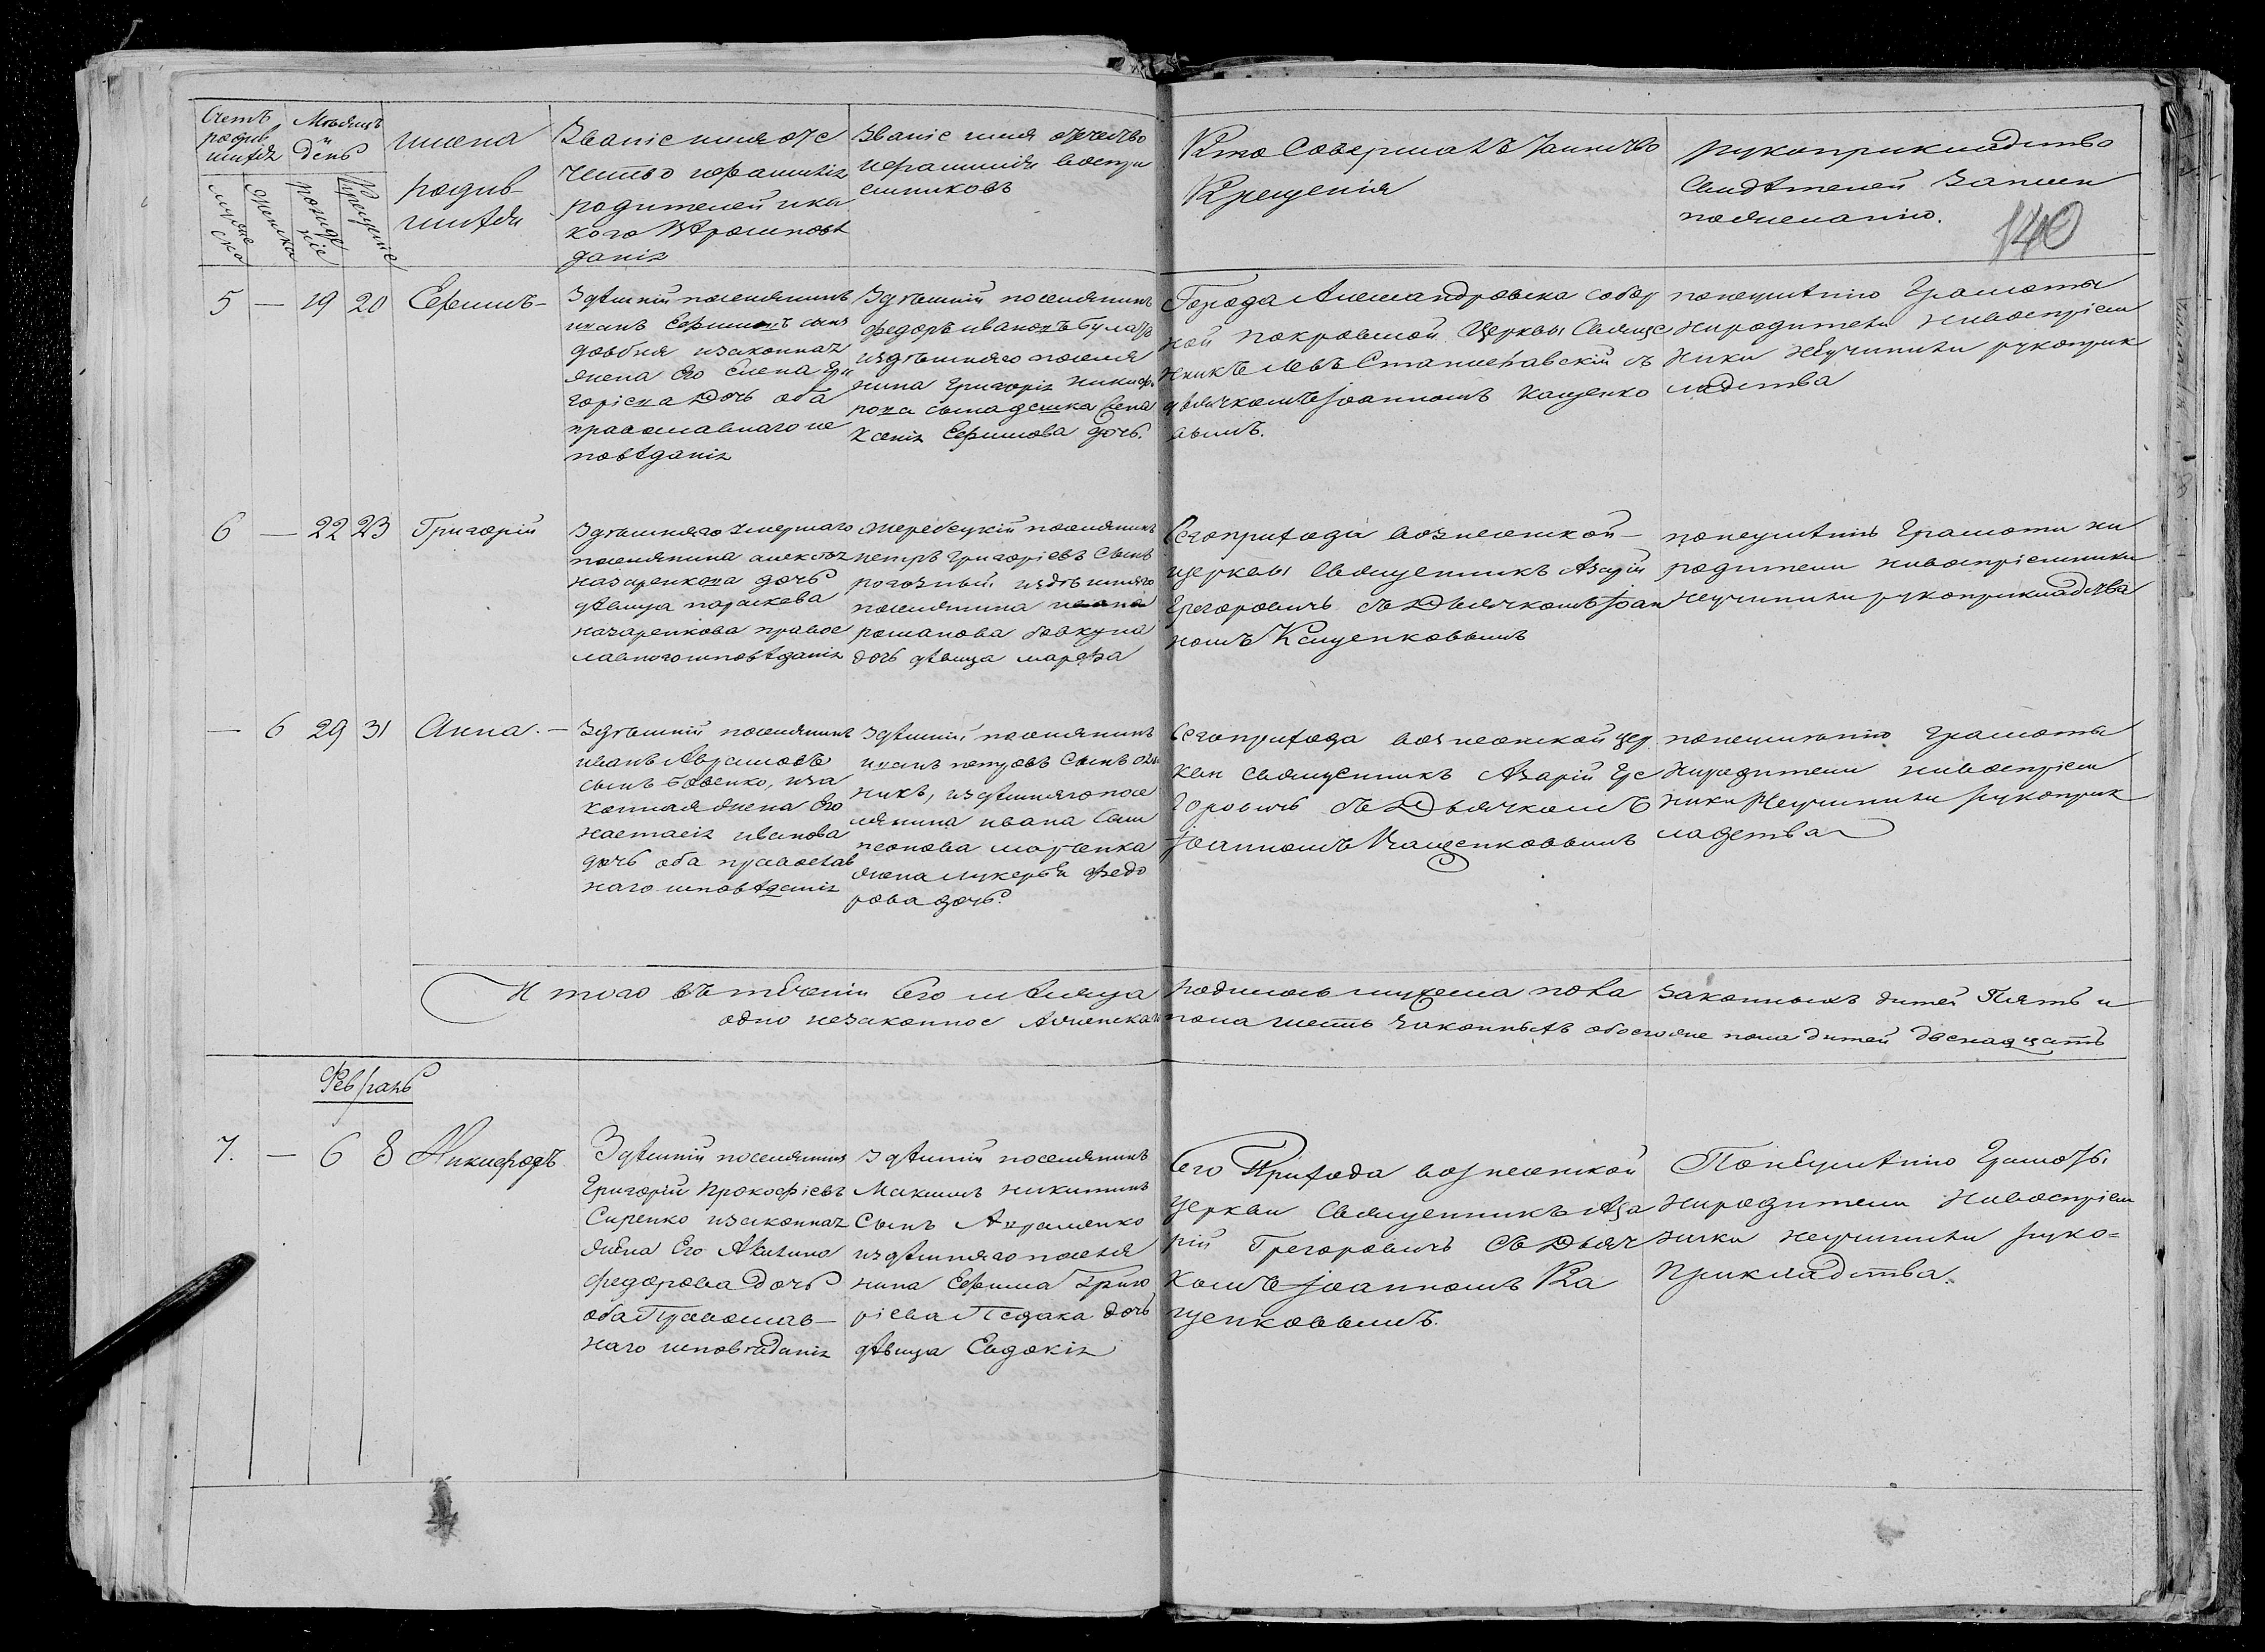 Счетъ родив шихся
Мѣсяцъ и день
имена родив шихся
Званіе имя оте
чество ифамилія
родителей ика
кого Вѣроисповѣ
данія
Званіе имя отчество
ифамилія воспри
емниковъ
Кто Совершалъ Таинство
Крещенія
рукоприкладство
Свидѣтелей Записи
пожеланію.
140
мужеска
женска
рожденіе
Крещеніе
5 — 19 20 Ефимъ —
Здѣшній поселянинъ
иванъ Ефимовъ сынъ
довбня изаконная
жена Его Елена Гри
горіева Дочь оба
православнаго ис
повѣданія
Здѣшній поселянинъ
федоръ ивановъ
издѣшняго поселя
нина григорія никиф.
рова сына жена
Ксенія Ефимова дочь.
Города Александровска собор
ной покровской Церквы Свяще
нникъ левъ Станиславскій съ
дьячкомъ Іоанномъ Кащенко
вымъ.
понеумѣнію Грамоты
ниродители нивоспріем
ники Неучинили рукоприк
ладства
6 — 22 23 Григорій
Здѣшняго умершаго
поселянина алексѣя
назаренкова дочь
дѣвица параскева
назаренкова правос
лавного исповѣданія
жеребецкій поселянинъ
петръ Григоріевъ Сынъ
рогозный издѣшняго
поселянина
романова бовкуна
дочь дѣвица марфа
Сегоприхода вознесенской —
церквы Священникъ Азарій
Грегоровичъ съ Дьячкомъ Іоан
номъ Кащенковымъ
понеумѣнію Грамоти ни
родители нивоспріемники
неучинили рукоприкладства
— 6 29 31 Анна. —
Здѣшній поселянинъ
иванъ Аврамовъ
сынъ бовенко, иза
конная жена Его
настасія иванова
дочь оба православ
наго исповѣданія
Здѣшній поселянинъ
иванъ петровъ Сынъ
никъ, издѣшняго посе
лянина ивана Сам
сонова
жена лукерья федо
рова дочь.
Сегоприхода вознесенской цер
кви священникъ Азарій Гре
горовичъ съ Дьячкомъ
Іоанномъ Кащенковымъ
понеуменію грамоты
ниродители нивоспріем
ники Неучинили рукоприк
ладства
И того въ теченіи Сего мѣсяца родилось мужеска пола законныхъ дитей Пять и
одно незаконное Аженскаго пола шесть законныхъ обоего же пола дитей двенадцать
Февраль
7. — 6 8 Никифоръ
Здѣшній поселянинъ
Григорій Прокофіевъ
Сиренко изаконная
жена Его Акилина
федорова Дочь
оба Православ—
наго исповѣданія
Здѣшній поселянинъ
Максимъ никитинъ
Сынъ Авраменко
издѣшняго поселя
нина Ефима Григо
ріева Педака дочь
дѣвица Евдокія
Сего Прихода вознесенской
Церкви Священникъ Аза
рій Грегоровичъ Съ Дьяч
комъ Іоанномъ Ка
щенковымъ.
Понеумѣнію Грамоты
ниродители нивоспріем
ники неучинили руко=
прикладства.